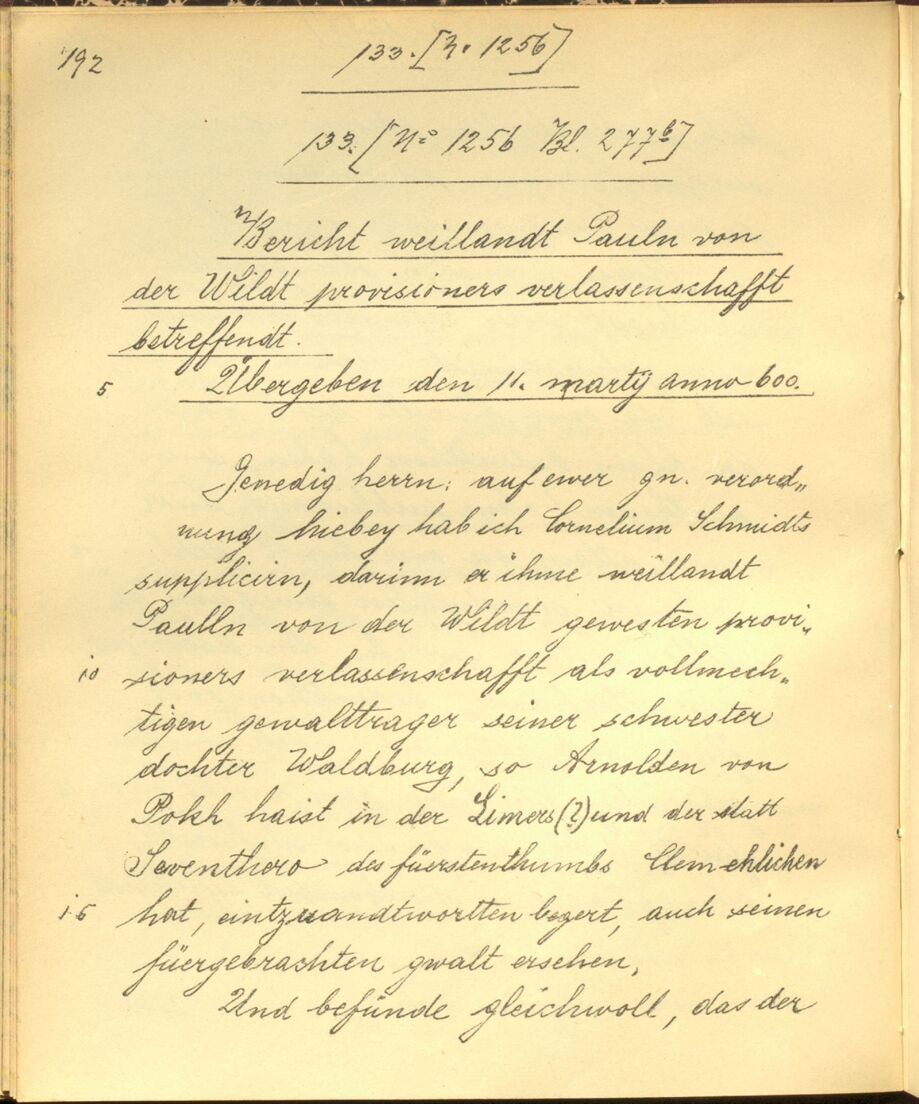 192
133. [N. 1256]
133. [No 1256 Bl. 277b]
Bericht weillandt Pauln von
der Wildt provisioners verlassenschafft
betreffendt.
5 Übergeben den 11. martÿ anno 600.
Genedig herrn: auf ewer gn. verord„
nung hiebey hab ich Cornelium Schmidts
supplicirn, darinn er ihme weillandt
Paulln von der Wildt gewesten provi„
10 sioners verlassenschafft als vollmech„
tigen gewalttrager seiner schwester
dochter Waldburg, so Arnolden von
Pokh haist in der Limers(?) und der statt
Seventhero des füerstenthumbs Clem ehlichen
15 hat, eintzuandtwortten begert, auch seinen
füergebrachten gwalt ersehen,
Und befünde gleichwoll, das der